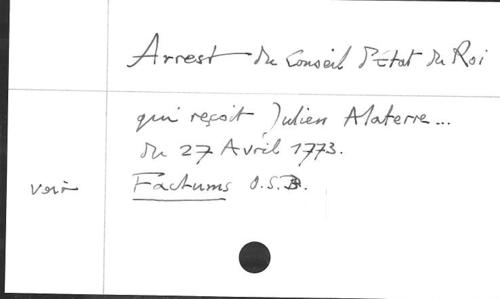 Arrest du Conseil d'Etat du Roi
qui reçoit Julien Alaterre...
du 27 Avril 1773.
voir Factums O.S.B.